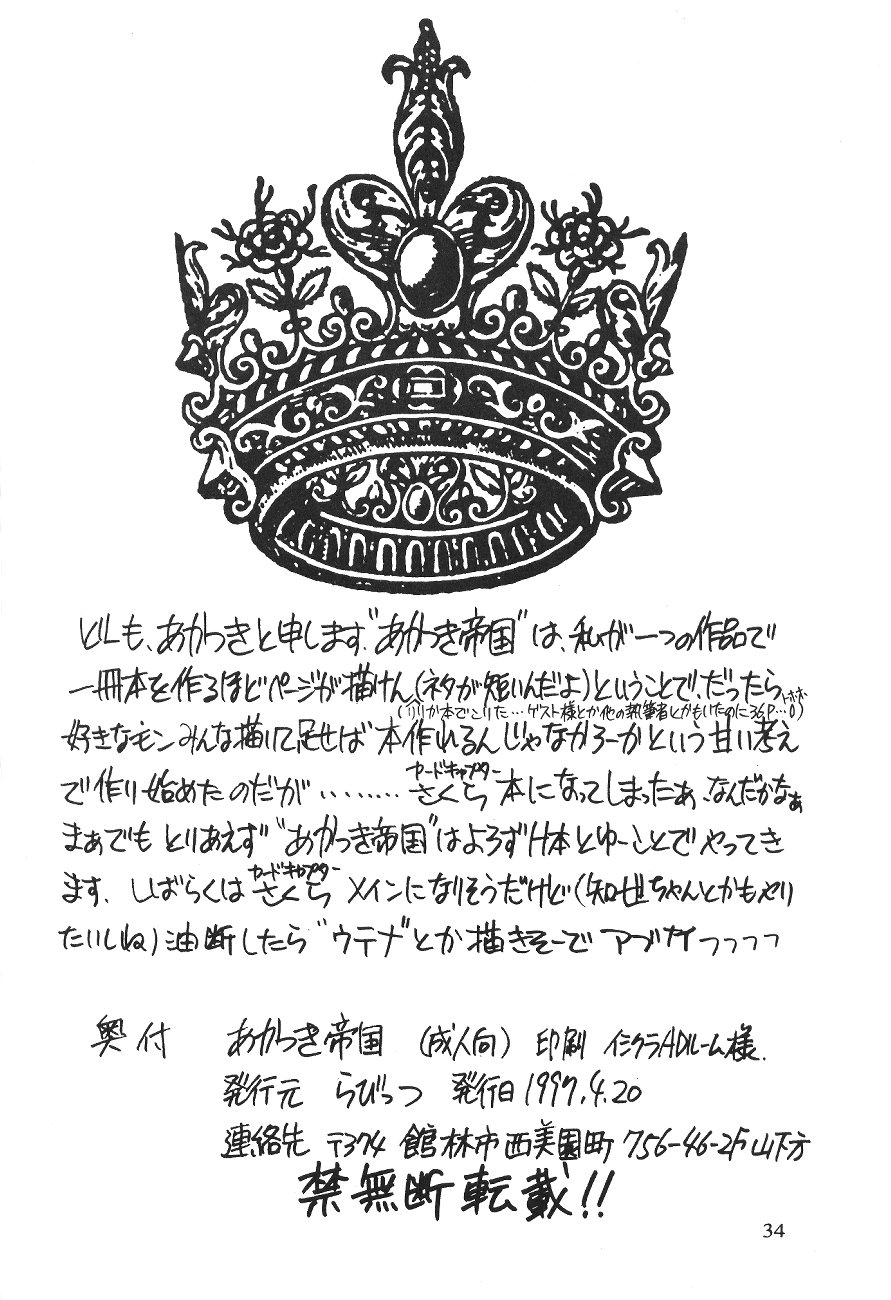 どーも、あかつきと申します。"あかつき帝国"は、私が一つの作品で
一冊本を作るほどページが描けん(ネタが短いんだよ)ということで、だったら
トホホ
本でこりた…ゲスト様とか他の執筆者とかもいたのに36P…0)
好きなモンみんな描いて足せば本作れるんじゃなかろーかという甘い考え
で作り始めたのだが………さくら本になってしまったぁ、なんだかなぁ
カードキャプター
まぁでもとりあえず"あかつき帝国"はよろずH本とゆーことでやってき
ます。しばらくはさくらメインになりそうだけど(知世ちゃんとかもやり
カードキャプター
たいしね)油断したら"ウテナ"とか描きそーでアブナイっっっっ
奥付 あかつき帝国 (成人向) 印刷 イシクラADルーム様.
発行元 らびっつ 発行日 1997.4.20
連絡先 〒374 館林市西美園町 756-46-2F 山下方
禁無断転載!!
34